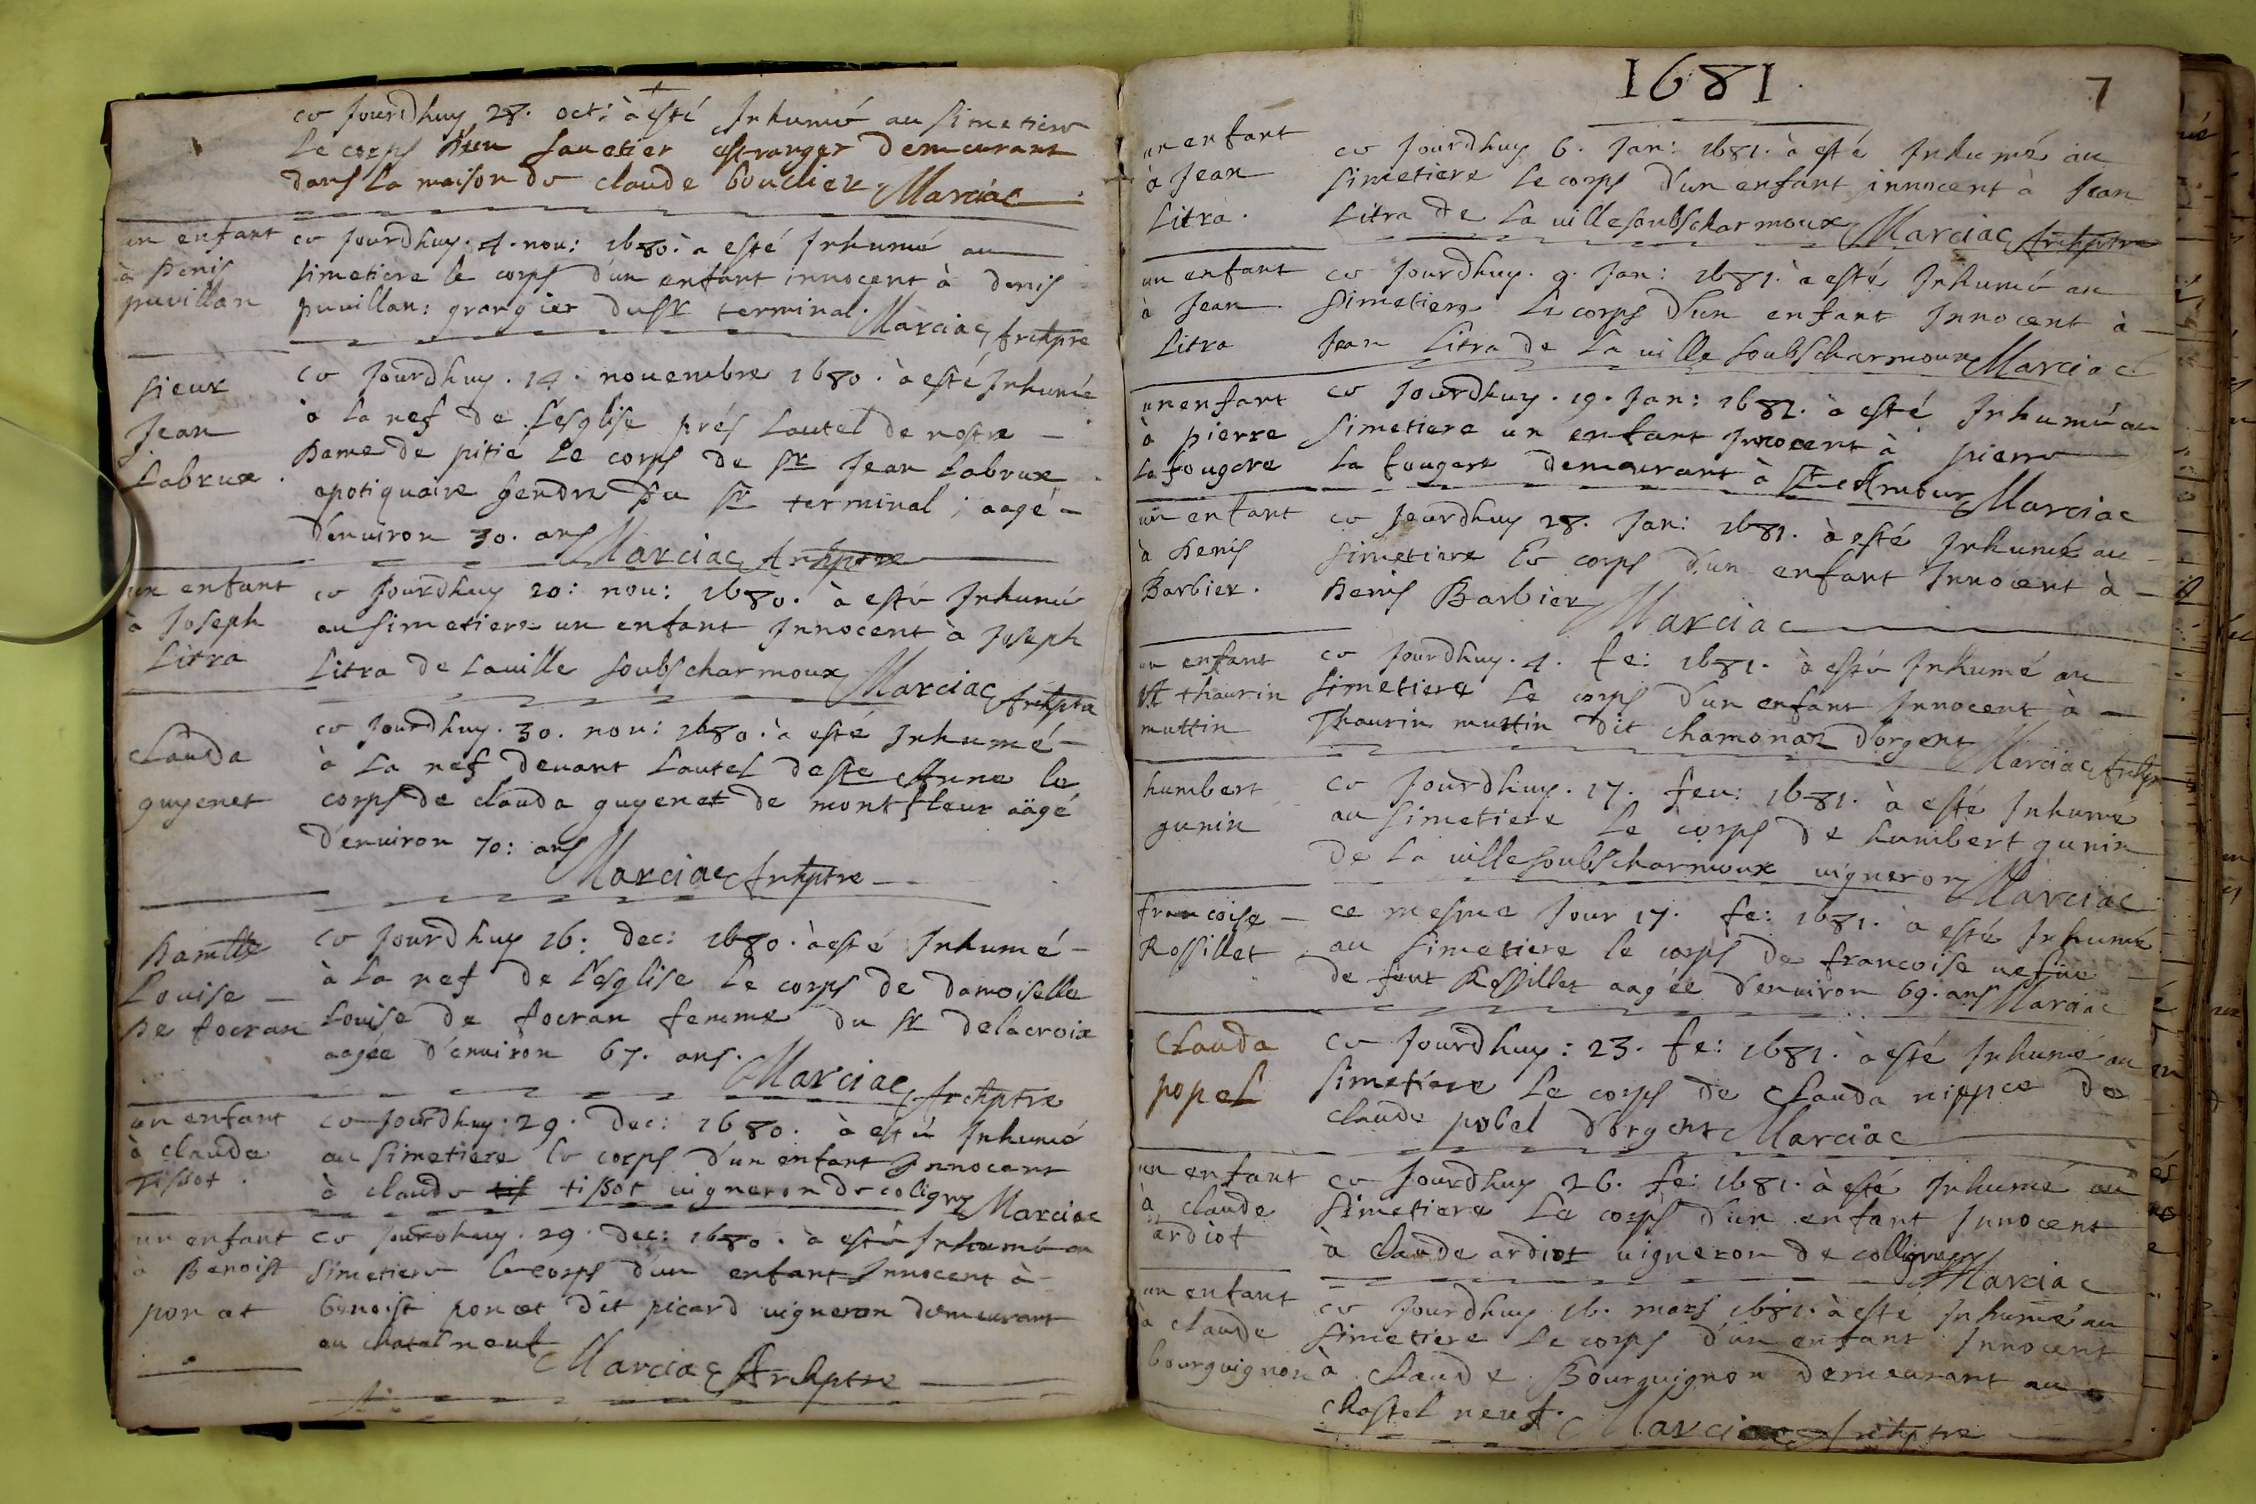 ce Jourdhuy 28. oct: à esté Inhumé au simetiere
Le corps d'un sauetier estranger demeurant
dans la maison de claude bouclier Marciac
un enfant
à Denis
puvillan
ce Jourdhuy. 4. nou: 1680. à esté Inhumé au
simetiere le corps d'un enfant innocent à denis
puvillan: grangier du sr terminal. Marciac Archptre
sieur
Jean
Labrux.
ce Jourdhuy. 14. nouembre 1680. à esté Inhumé
à La nef de L'esglise prés Lautel de nostre
Dame de pitié Le corps de sr Jean Labrux
apotiquaire gendre du sr terminal; aagé
d'enuiron 30. ans Marciac Archptre
un enfant
à Joseph
Litra
ce Jourdhuy 20: nou: 1680. à esté Inhumé
au simetiere un enfant Innocent à Joseph
Litra de Lauille soubs charmoux Marciac Archptre
clauda
guyenet
ce Jourdhuy. 30. nou: 1680. à esté Inhumé
à La nef deuant Lautel de ste Anne le
corps de clauda guyenet de montfleur aägé
d'enuiron 70: ans
Marciac Archptre
Damlle
Louise
De focran
ce Jourdhuy 16: dec: 1680. à esté Inhumé
à La nef de L'esglise Le corps de damoiselle
Louise de focran femme du sr delacroix
aagée d'enuiron 67. ans. Marciac Archptre
un enfant
à claude
Tissot.
ce Jourdhuy. 29. Dec: 1680. à esté Inhumé
au simetiere le corps d'un enfant Innocent
à claude tis tissot uigneron de coligny Marciac
un enfant
à Benoist
ponat
ce Jourdhuy. 29. dec: 1680. à esté Inhumé au
simetiere le corps d'un enfant Innocent à
benoist poncet dit picard uigneron demeurant
au chatal neuf Marciac Archptre
1681.
7
un enfant
à Jean
Litra.
ce Jourdhuy 6. Jan: 1681. à esté Inhumé au
simetiere Le corps d'un enfant innocent à Jean
Litra de La uille soubs charmoux Marciac Archptre
un enfant
à Jean
Litra
ce Jourdhuy. 9. Jan: 1681. à esté Inhumé au
simetiere Le corps d'un enfant Innocent à
Jean Litra de La uille soubs charmoux Marciac
un enfant
à pierre
La fougere
ce Jourdhuy. 19. Jan: 1681. à esté Inhumé au
simetiere un enfant Innocent à pierre
La fougere demeurant à St Amour Marciac
un enfant
à Denis
Barbier.
ce Jourdhuy 28. Jan: 1681. à esté Inhumé au
simetiere Le corps d'un enfant Innocent à
Denis Barbier Marciac
un enfant
à thaurin
muttin
ce Jourdhuy. 4. fe: 1681. à esté Inhumé au
simetiere Le corps d'un enfant Innocent à
Thaurin muttin dit chamonar dorgent Marciac Archptre
humbert
gunin
ce Jourdhuy. 17. feu: 1681. à esté Inhumé
au simetiere Le corps de humbert gunin
de La uille soubs charmoux uigneron Marciac
francoise
Rossillet
ce mesme Jour 17. fe: 1681. à esté Inhumé
au simetiere le corps de francoise uefue
de feut Rossillet aagée d'enuiron 69. ans Marciac
Clauda
popel
ce Jourdhuy: 23. fe: 1681. à esté Inhumé au
simetiere Le corps de Clauda niepce de
claude pobel dorgent Marciac
un enfant
à claude
ardiot
ce Jourdhuy 26. fe: 1681. à esté Inhumé au
simetiere Le corps d'un enfant Innocent
à claude ardiot uigneron de colligny
Marciac
un enfant
à claude
bourguignon
ce Jourdhuy 16. mars 1681. à esté Inhumé au
simetiere Le corps d'un enfant Innocent
à claude Bourguignon demeurant au
chastel neuf. Marciac Archptre